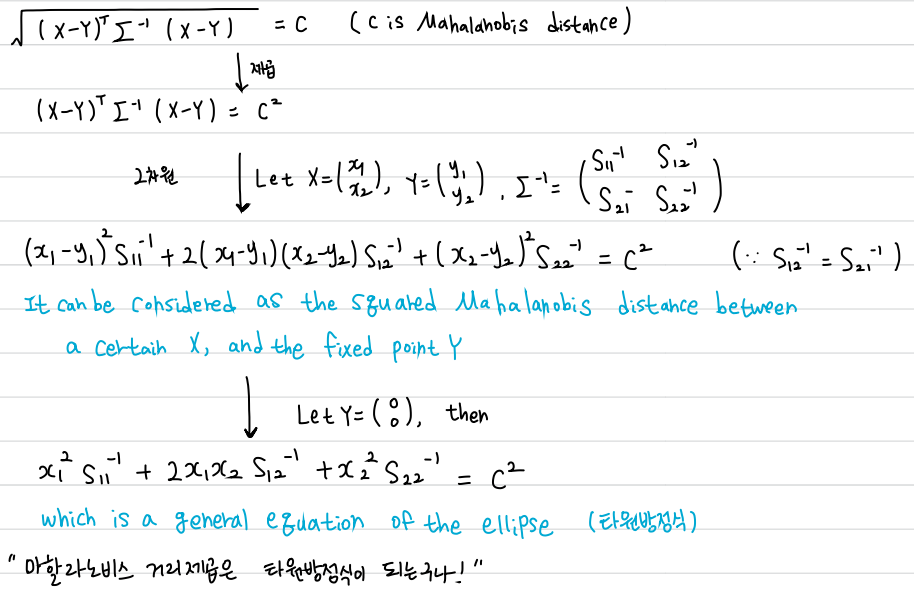 √(X-Y)ᵀ Σ⁻¹ (X-Y) = C (C is Mahalanobis distance)
↓ 제곱
(X-Y)ᵀ Σ⁻¹ (X-Y) = C²
2차원 ↓ Let X=(x₁ x₂), Y=(y₁ y₂), Σ⁻¹= (S₁₁⁻¹ S₁₂⁻¹ S₂₁⁻ S₂₂⁻¹)
(x₁-y₁)² S₁₁⁻¹ + 2(x₁-y₁)(x₂-y₂) S₁₂⁻¹ + (x₂-y₂)² S₂₂⁻¹ = C² (∵ S₁₂⁻¹ = S₂₁⁻¹)
It can be considered as the squared Mahalanobis distance between
a certain X, and the fixed point Y
↓ Let Y=(0 0), then
x₁² S₁₁⁻¹ + 2x₁x₂ S₁₂⁻¹ + x₂² S₂₂⁻¹ = C²
which is a general equation of the ellipse (타원방정식)
"마할라노비스 거리제곱은 타원방정식이 되는구나!"